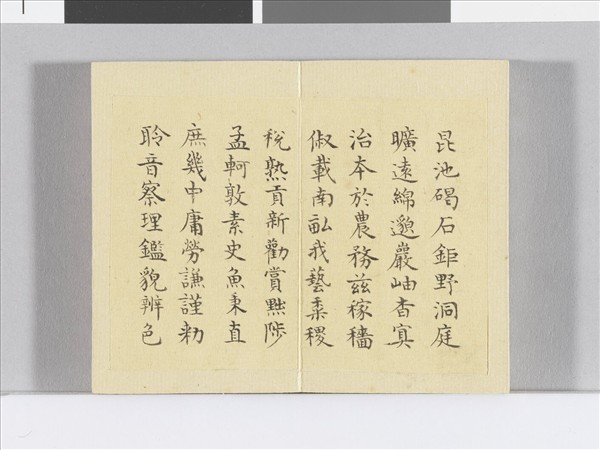 昆池碣石鉅野洞庭
曠遠綿邈巖岫杳冥
治本於農務茲稼穡
俶載南畝我藝黍稷
稅熟貢新勸賞黜陟
孟軻敦素史魚秉直
庶幾中庸勞謙謹勑
聆音察理鑑貌辨色